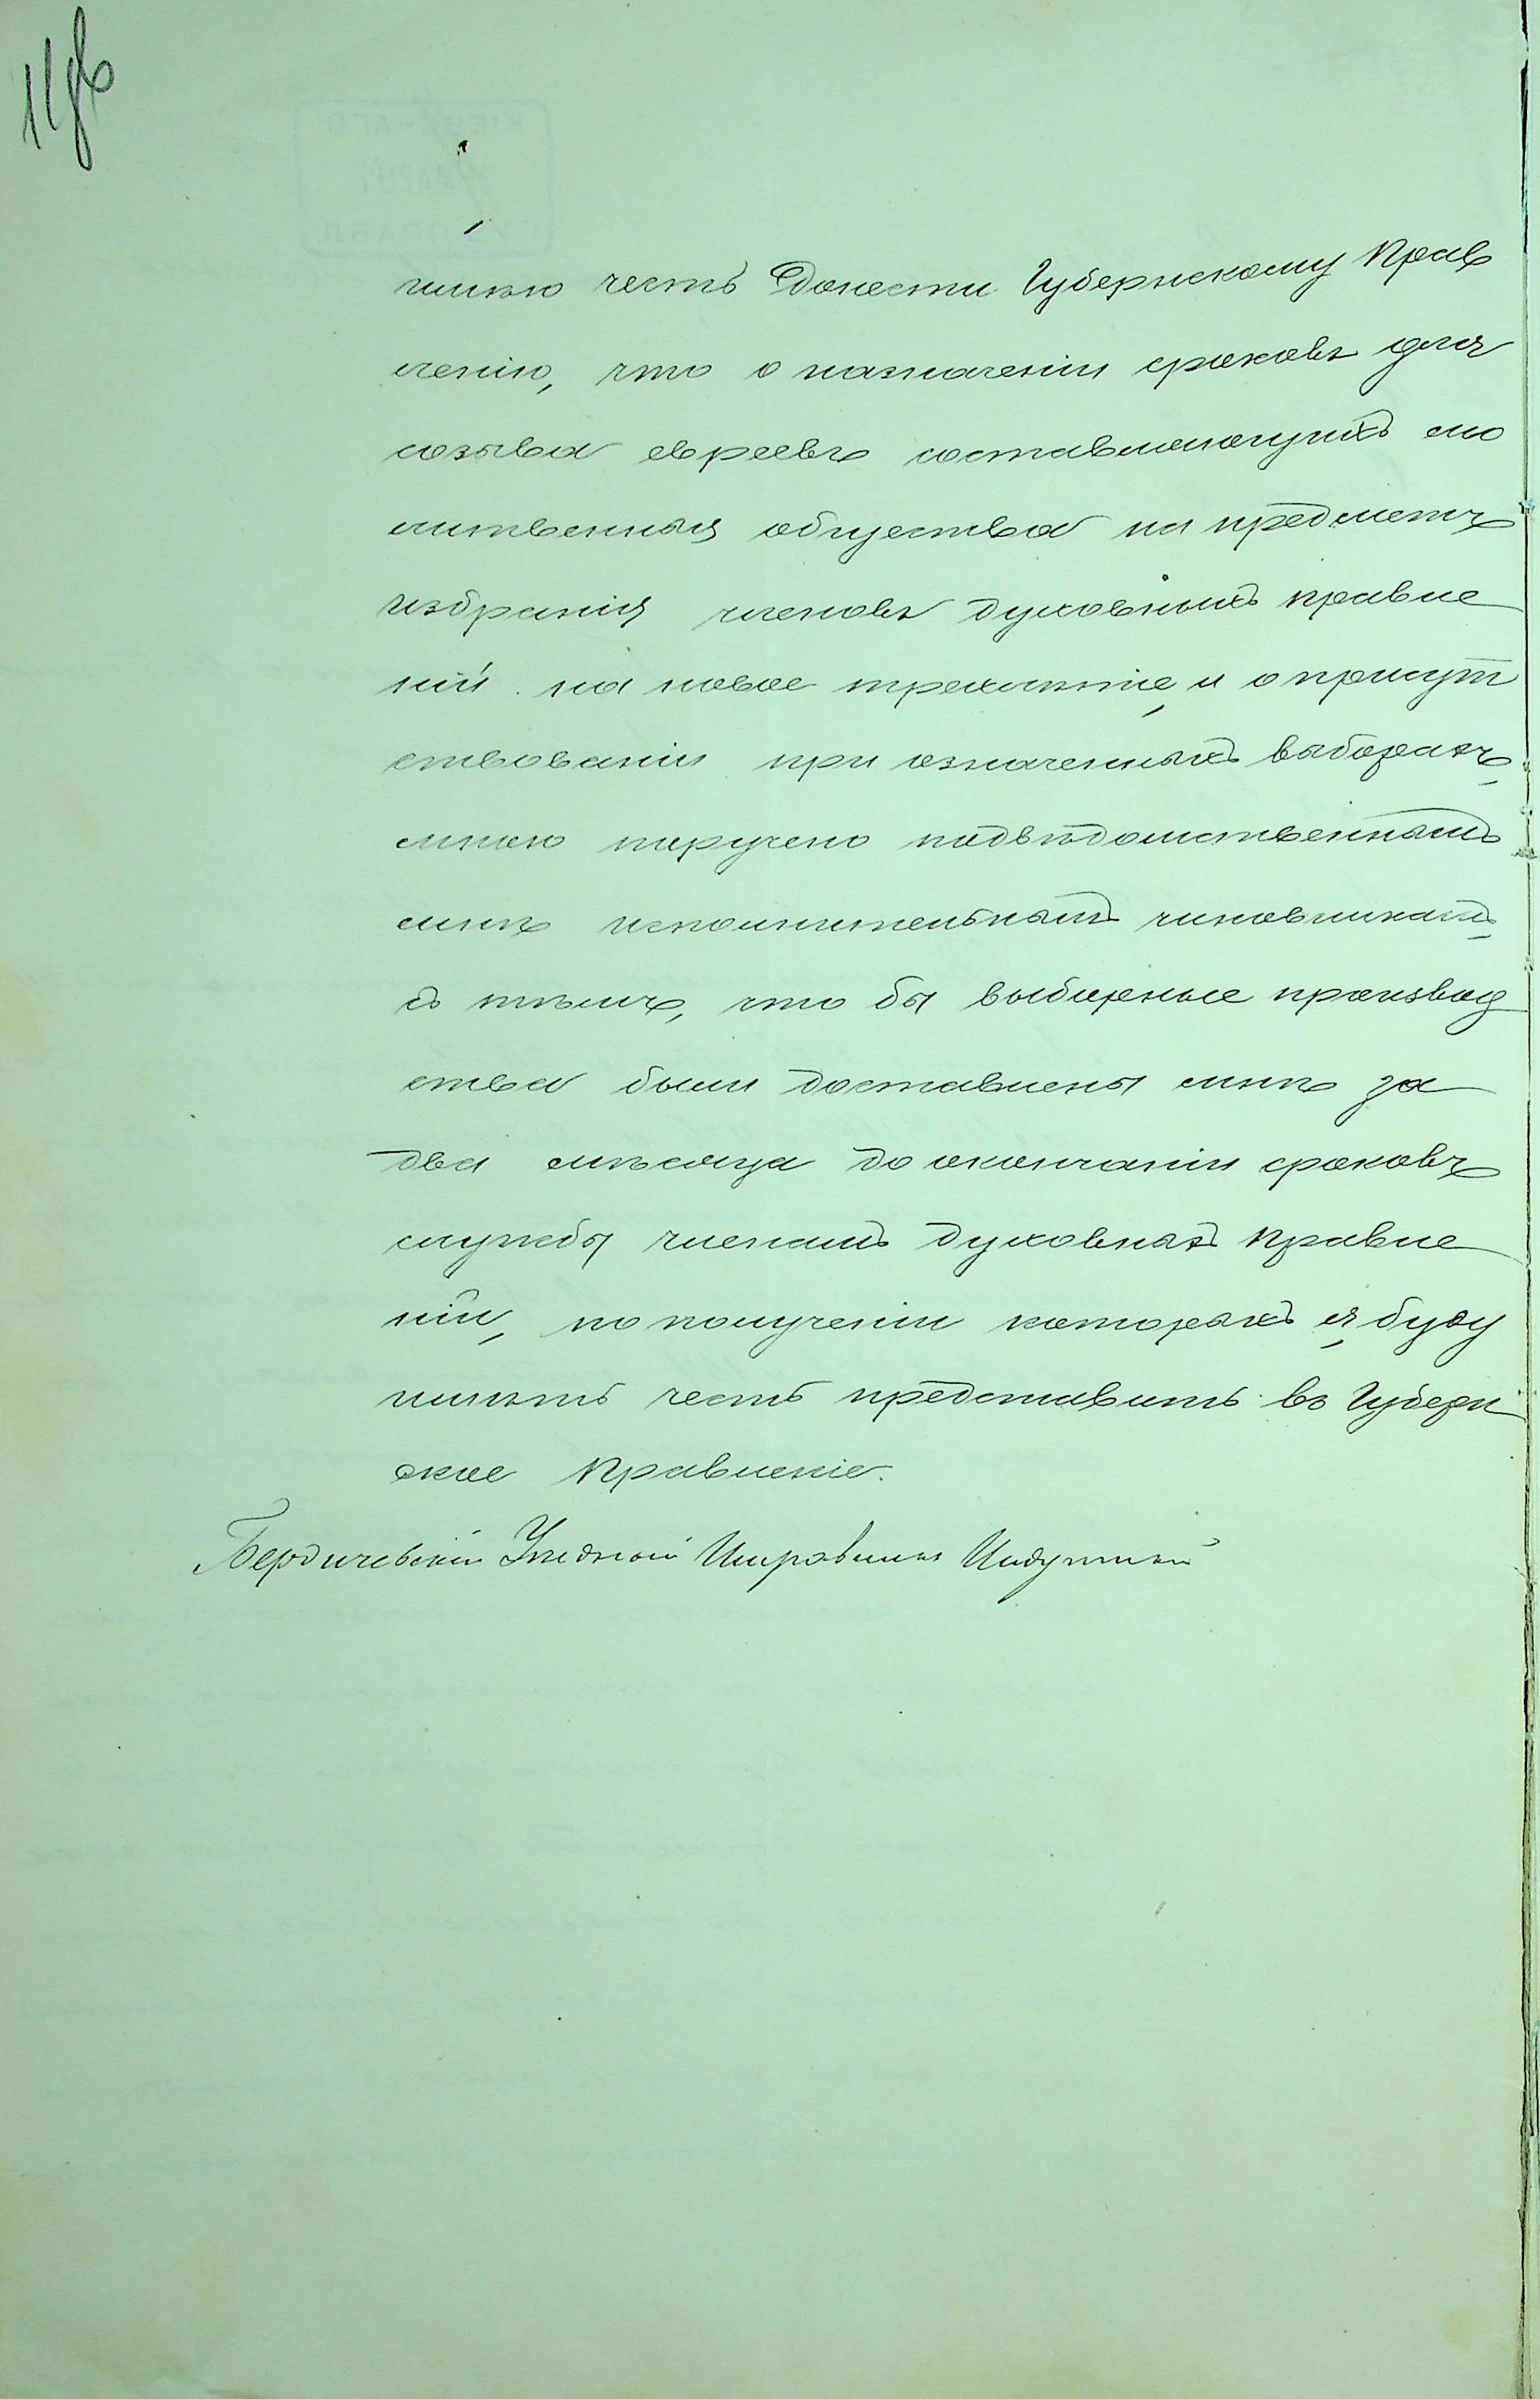 11об
имѣю честь донести Губернскому Прав
ленію, что о назначеніи сроковъ для
созыва евреевъ составляющихъ мо
литвенныя общества на предметъ
избранія членовъ духовныхъ правле
ній на новое трехлѣтіе, и о присут
ствованіи при означенныхъ выборахъ,
мною поручено подвѣдомственнымъ
мнѣ исполнительнымъ чиновникамъ,
съ тѣмъ, что бы выборные производ
ства были доставлены мнѣ за
два мѣсяца до окончанія сроковъ
службы членамъ духовныхъ правле
ній, по полученіи которыхъ я, буду
имѣть честь представить въ Губерн
ское Правленіе.
Бердичевскій Уѣздный Исправникъ